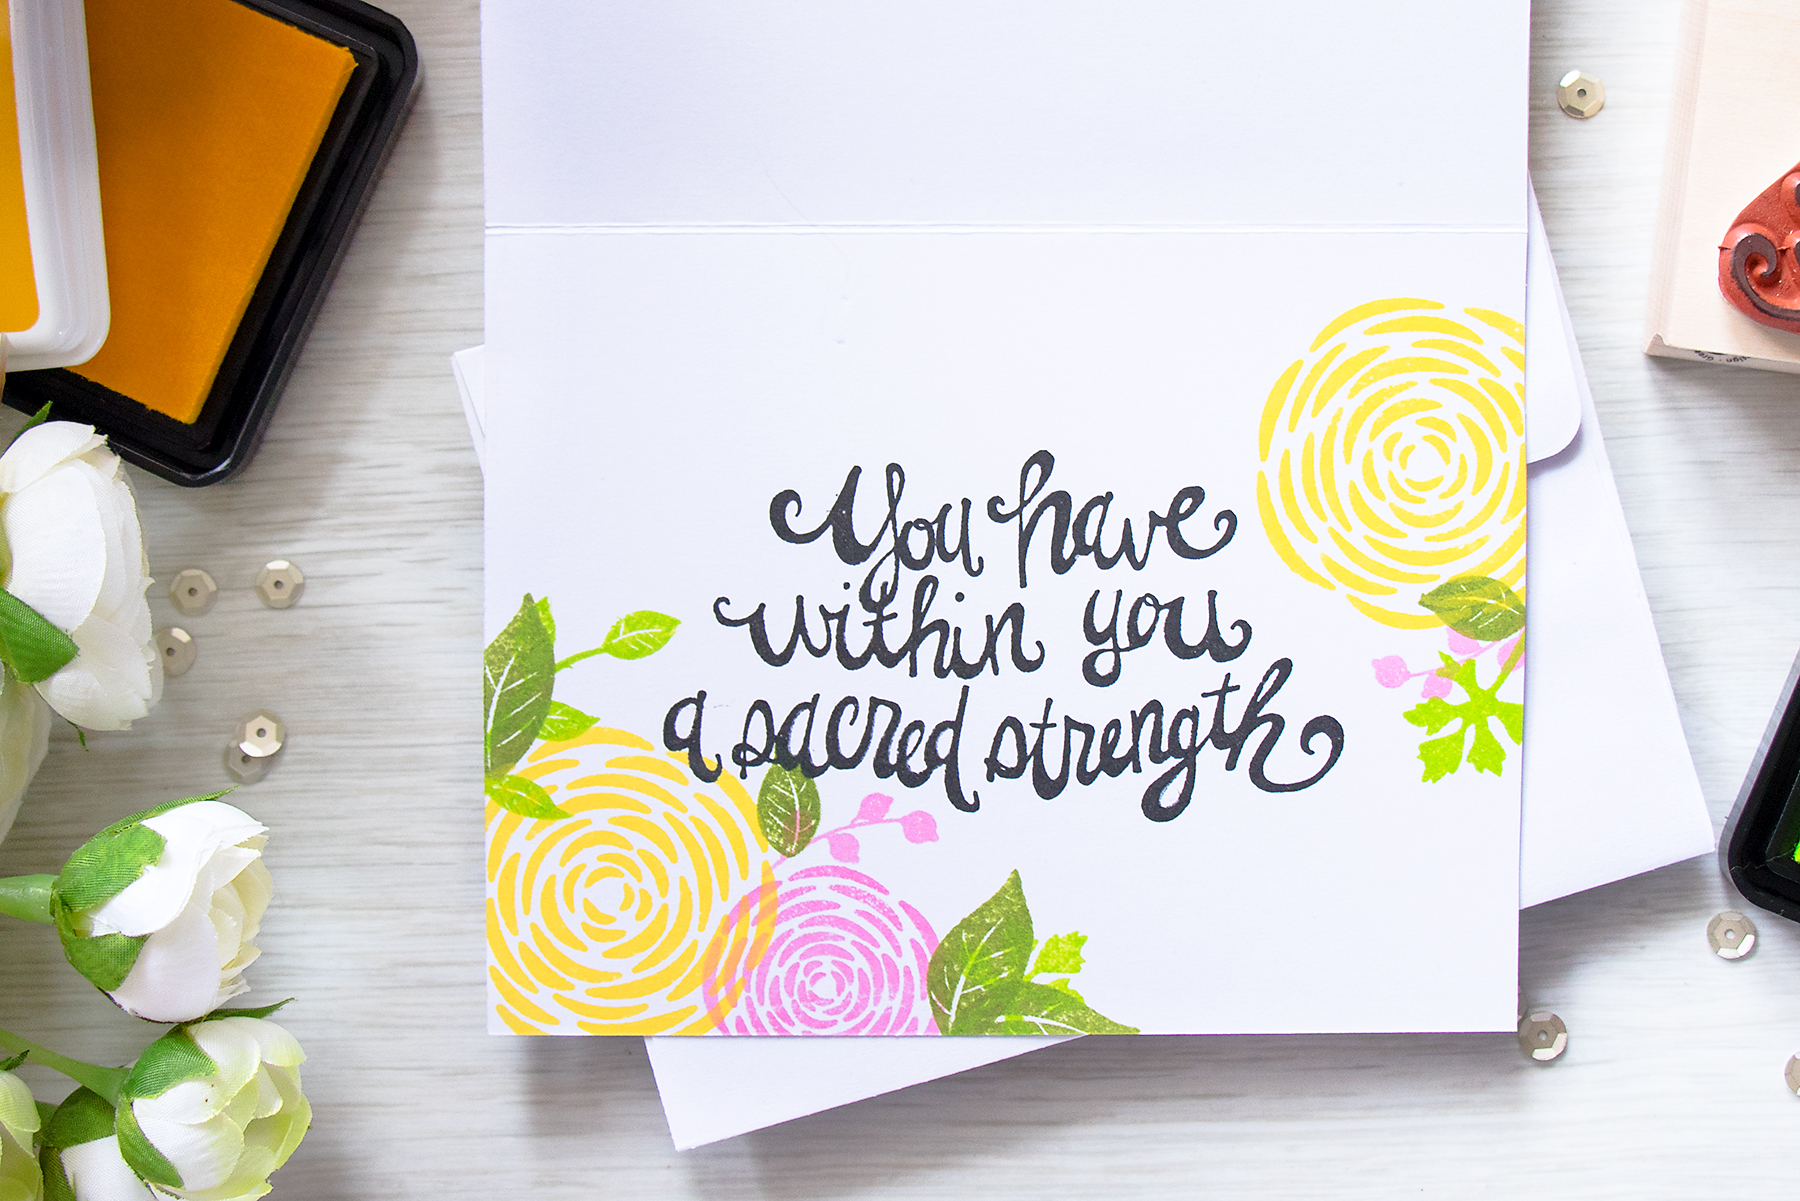 You have
within you
a sacred strength